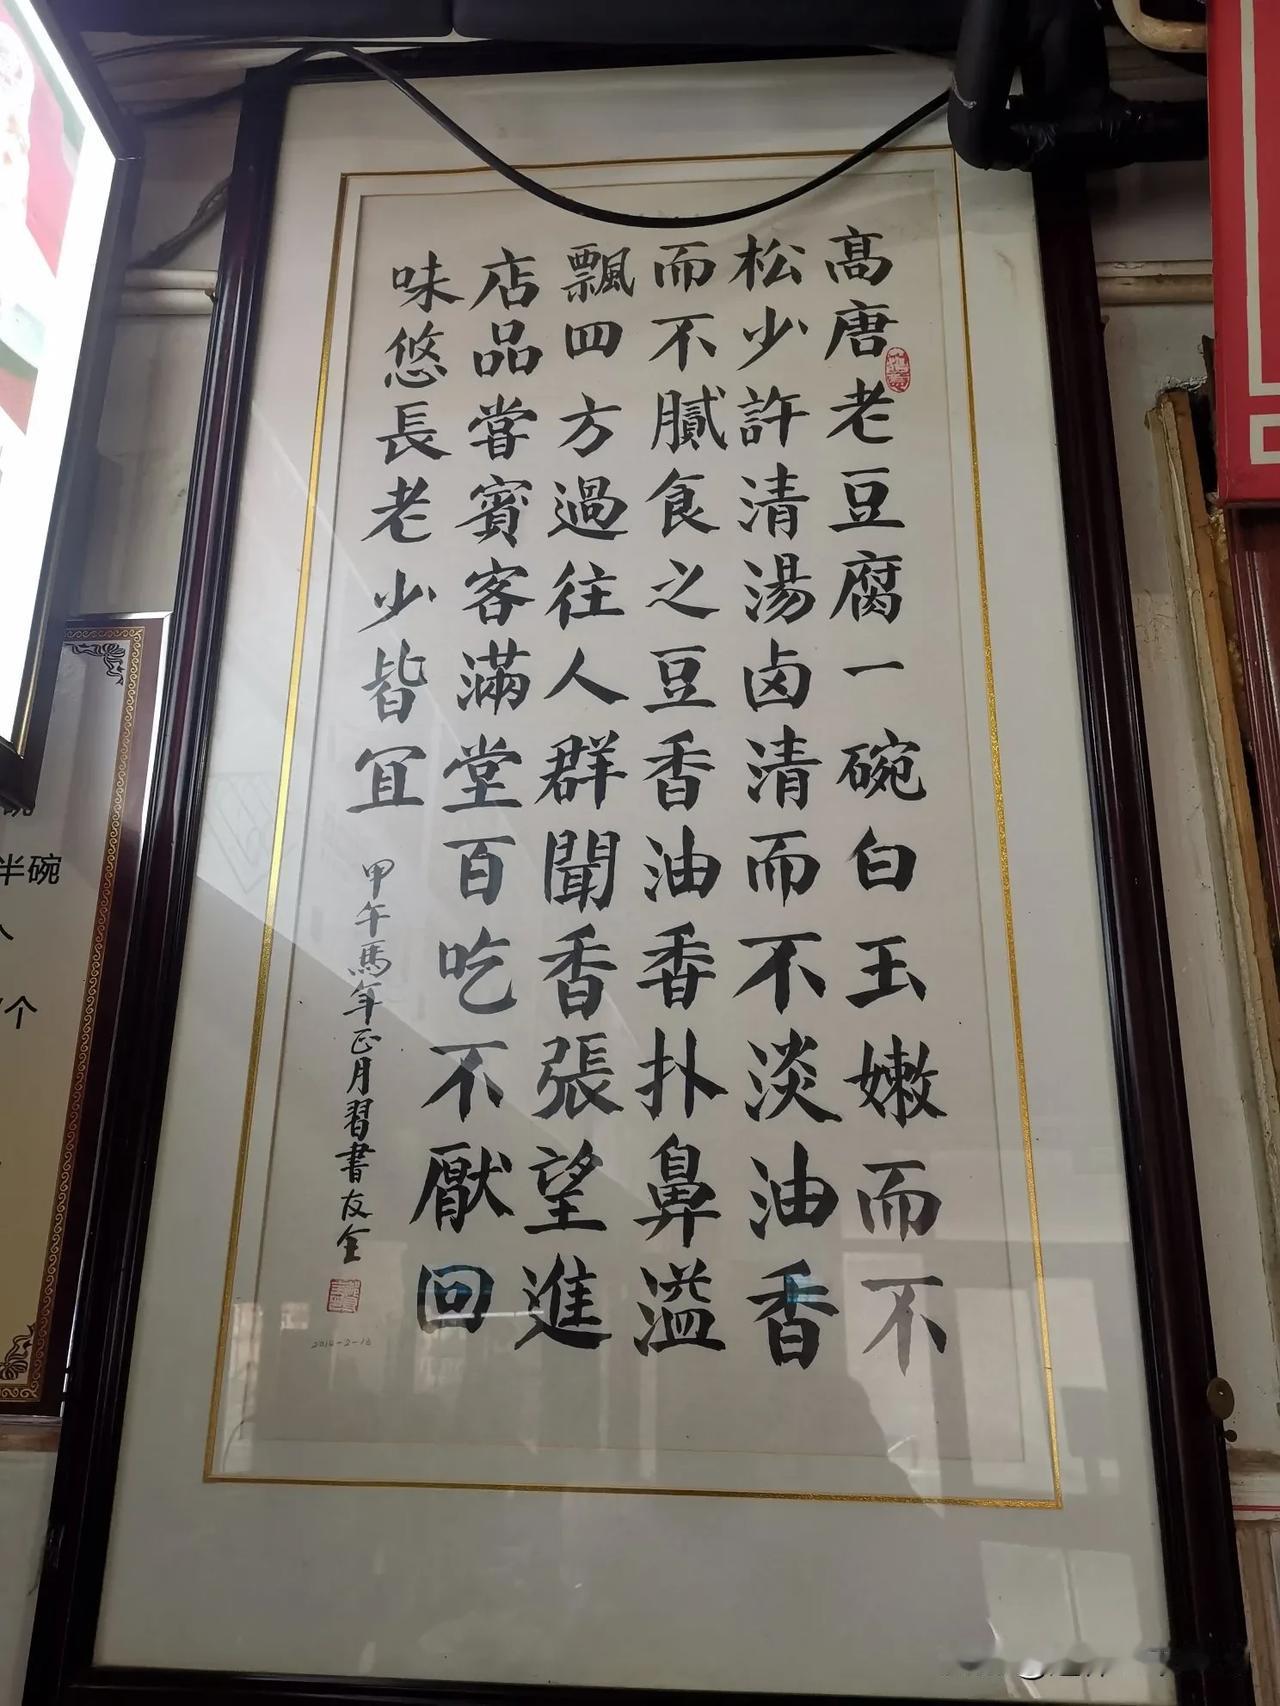 高唐老豆腐一碗白玉嫩而不
松少許清湯卤清而不淡油香
而不膩食之豆香油香扑鼻溢
飄四方過往人群聞香張望進
店品嘗賓客滿堂百吃不厭回
味悠長老少皆宜
甲午馬年正月習書友全
2014-2-16
半碗
个